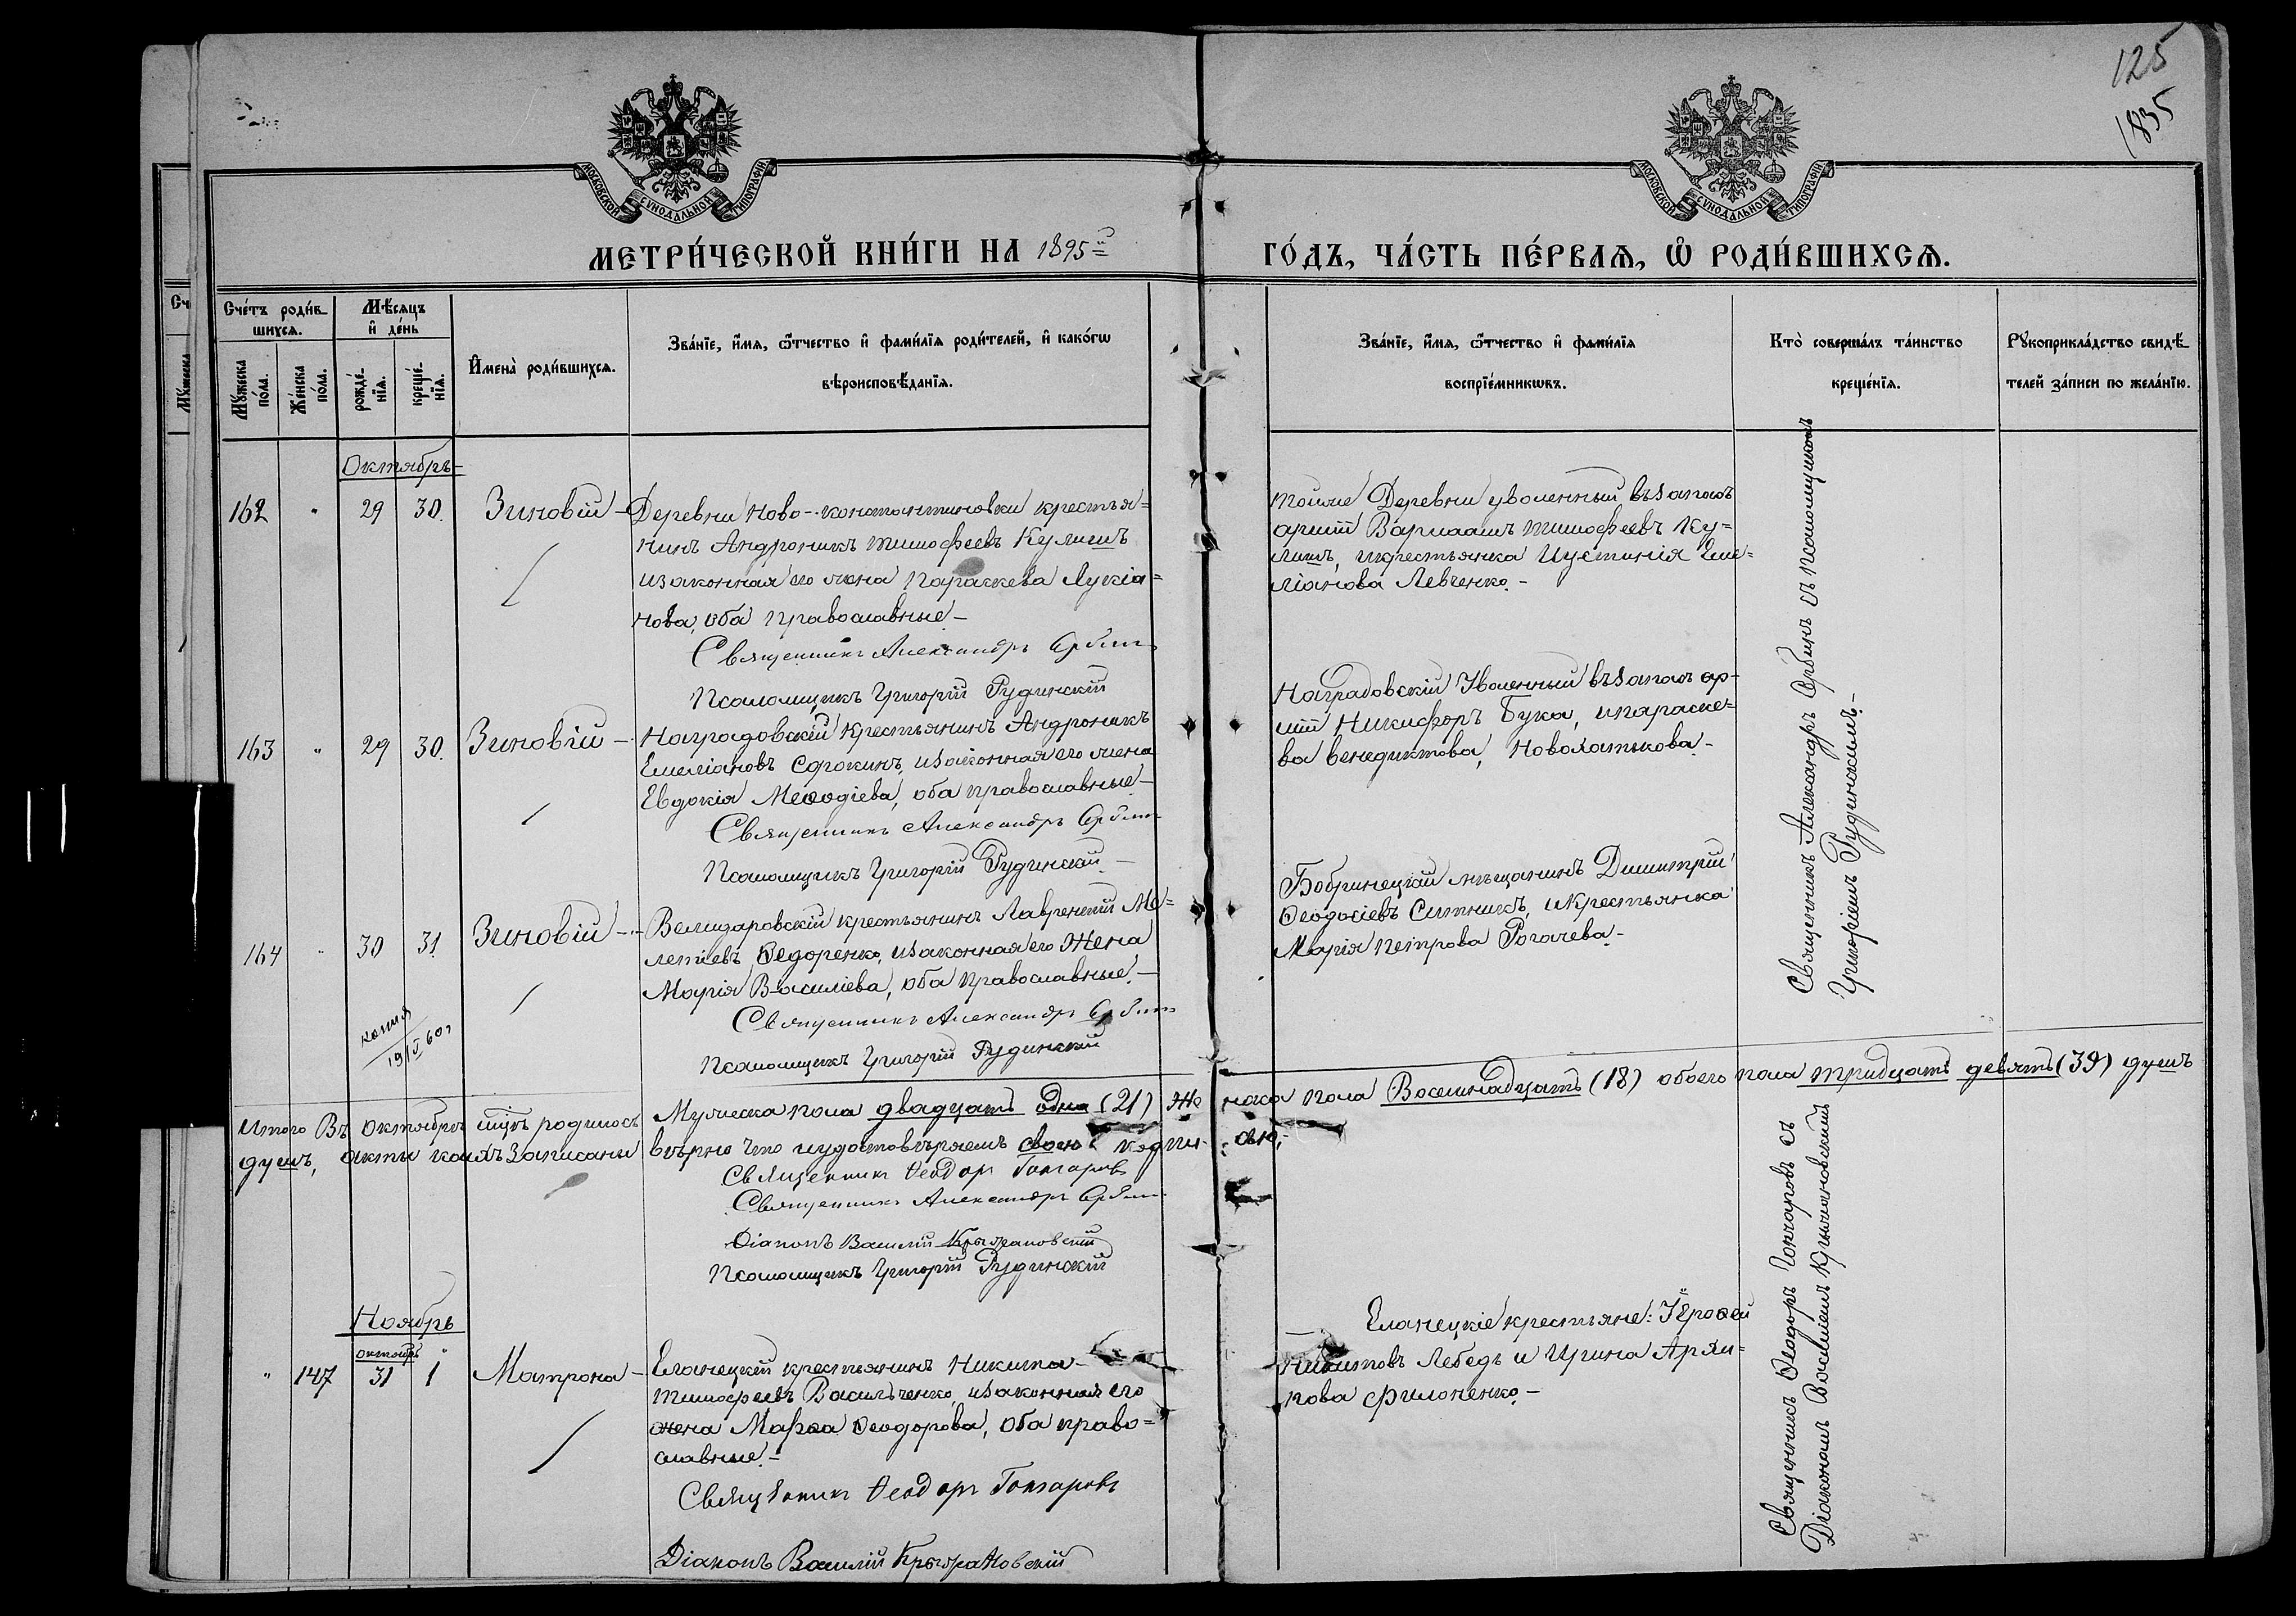 125
1835
МОСКОВСКОЙ СѴНОДАЛЬНОЙ ТИПОГРАФІИ
МОСКОВСКОЙ СѴНОДАЛЬНОЙ ТИПОГРАФІИ
МЕТРИ́ЧЕСКОЙ КНИ́ГИ НА 1895й
ГО́ДЪ, ЧА́СТЬ ПЕ́РВАЯ, Ѡ РОДИ́ВШИХСЯ.
Сче́тъ роди́в-
шихся.
Мѣ́сяцъ
и де́нь
Му́жеска
по́ла.
Же́нска
по́ла.
рожде́-
нїя.
креще́-
нїя.
Имена̀ роди́вшихся.
Зва́нїе, и́мя, ѻ́тчество и фами́лїя роди́телей, и како́гѡ
вѣроисповѣ́данїя.
Зва́нїе, и́мя, ѻ́тчество и фами́лїя
воспрїе́мникѡвъ.
Кто̀ соверша́лъ та́инство
креще́нїя.
Рꙋкоприкла́дство свидѣ́-
телей за́писи по жела́нїю.
Октябрь
162 " 29 30. Зиновій -
Деревни Ново-константиновки крестья=
нинъ Андроникъ Тимофеевъ Кулишъ
изаконная его жена Параскева Лукіа=
нова, оба православные -
Священникъ Александръ
Псаломщикъ Григорій Рудинскій
тойже Деревни уволенный въ запасъ
арміи Варлаамъ Тимофеевъ Ку=
лишъ, икрестьянка Иустинія Еме=
ліанова Левченко. -
163 " 29 30. Зиновій -
Натрадовскій крестьянинъ Андроникъ
Емеліановъ Сорокинъ, изаконная его жена
Евдокія Меѳодіева, оба православные -
Священникъ Александръ
Псаломщикъ Григорій Рудинскій -
Натрадовскій Уволенный въ запасъ ар-
міи Никифоръ Бука, ипараске-
ва Венедиктова, Новохатькова -
164 " 30 31. Зиновій -
Велидаровскій крестьянинъ Лаврентій Ме=
летіевъ Ѳедоренко, изаконная его Жена
Марія Василіева, оба православные. -
Священникъ Александръ
Псаломщикъ Григорій Рудинскій
Бобринецкій мѣщанинъ Димитрій
Ѳеодосіевъ Ситникъ, икрестьянка
Марія Петрова Рогачева. -
Священникъ Александръ съ псаломщикомъ
Григоріемъ Рудинскимъ. -
копия
19/V 60г
Итого Въ октябрѣ мцѣ родилось Мужеска пола двадцать одна (21) Же нска пола Восемнадцать (18) обоего пола тридцать девять (39) душъ
душъ, акты коихъ Записаны вѣрно что иудостовѣряемъ свою подпи сью;
Священникъ Ѳеодоръ Гончаровъ
Священникъ Александръ
Діаконъ Василій Крыжановскій
Псаломщикъ Григорій Рудинскій
Ноябрь
октябрь
" 147 31 1 Матрона -
Еланецкій крестьянинъ Никита
Тимофеевъ Васильченко, изаконная его
жена Марѳа Ѳеодорова, оба право=
славные. -
Священникъ Ѳеодоръ Гончаровъ
Діаконъ Василій Крыжановскій
Еланецкіе крестьяне: Іероѳей
Никитовъ Лебедь и Ирина
Филоненко. -
Священникъ Ѳеодоръ Гончаровъ съ
Діакономъ Василіемъ Крыжановскимъ